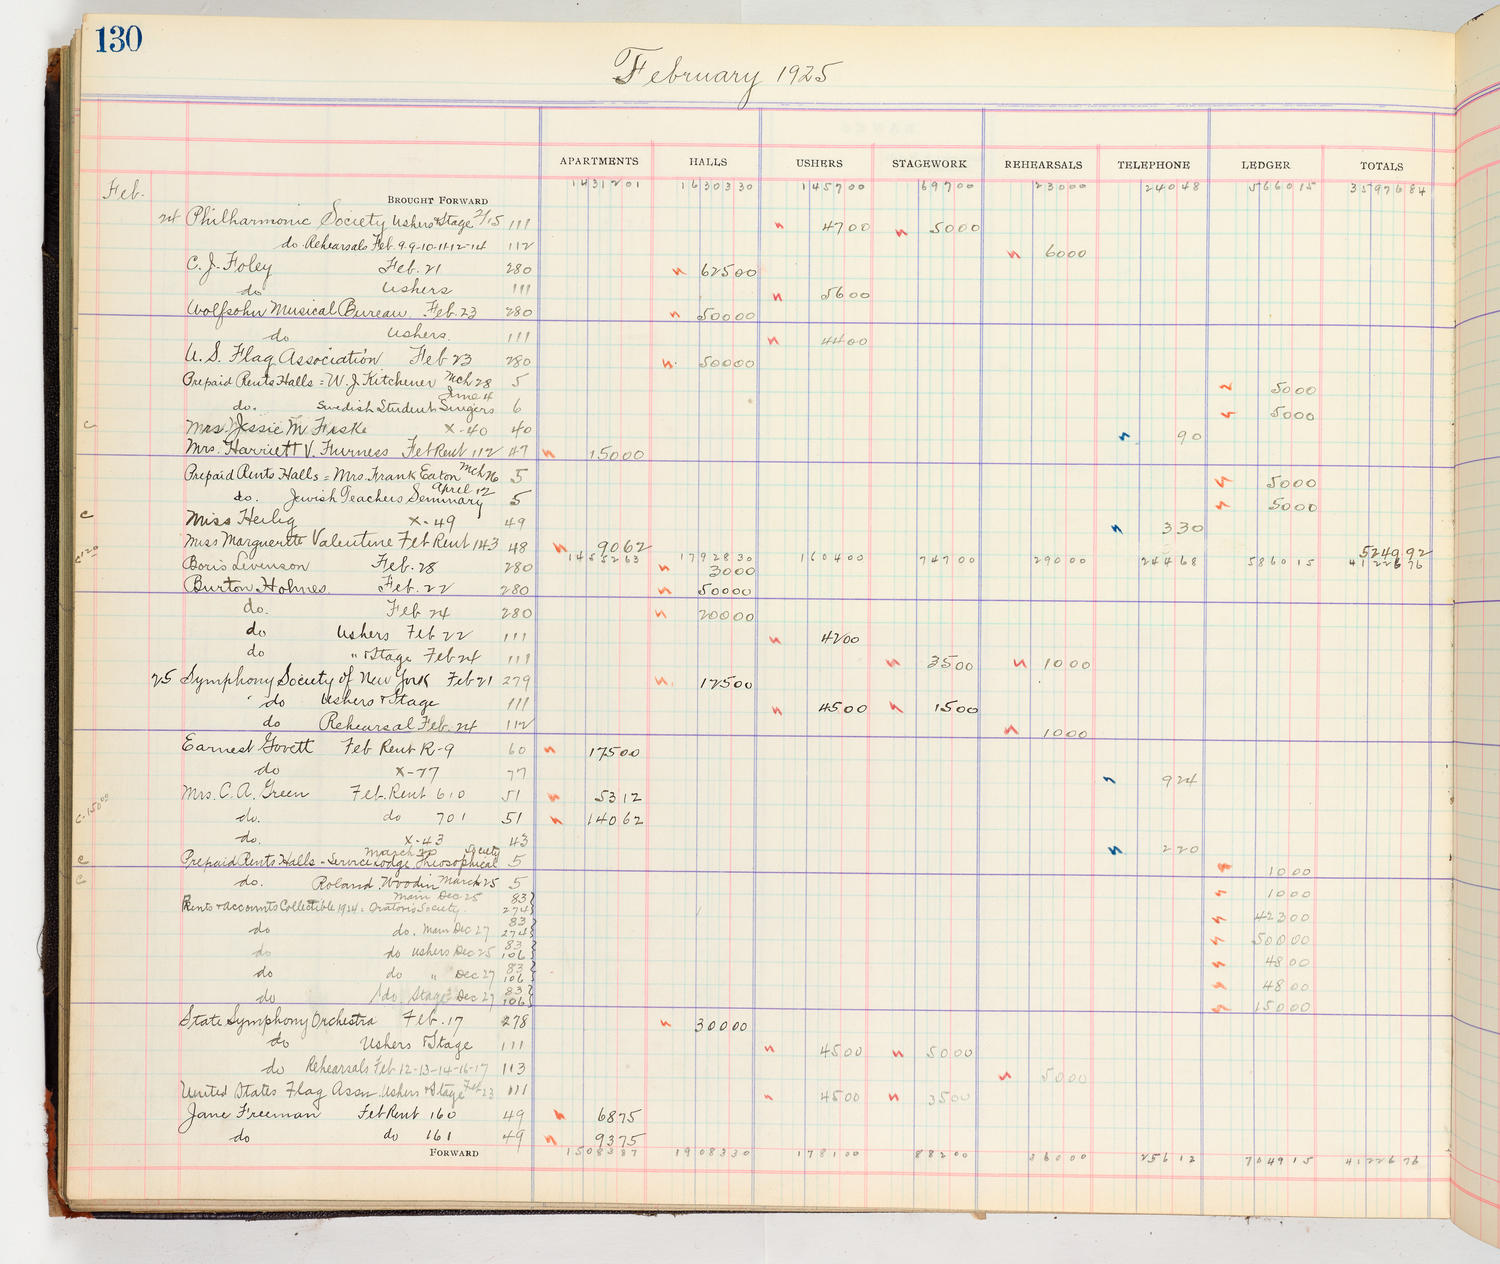 130
February 1925
APARTMENTS HALLS USHERS STAGEWORK REHEARSALS TELEPHONE LEDGER TOTALS
Feb. BROUGHT FORWARD 1431201 1630330 145700 69700 23000 24048 566015 3597684
24 Philharmonic Society Ushers & Stage 2/15 111 4700 5000
do Rehearsals Feb. 9-9-10-11-12-14 112 6000
C. J. Foley Feb. 21 280 62500
do Ushers 111 5600
Wolfsohn Musical Bureau Feb. 23 280 50000
do Ushers. 111 4400
U. S. Flag Association Feb 23 280 50000
Prepaid Rents Halls = W. J. Kitchener Mch 28 5 5000
do. Swedish Student Singers June 4 6 5000
c Mrs. Jessie M Fiske X-40 40 90
Mrs. Harriett V. Furness Feb Rent 112 47 15000
Prepaid Rents Halls = Mrs. Frank Eaton Mch 26 5 5000
do. Jewish Teachers Seminary April 12 5 5000
c Miss Heilig X-49 49 330
Miss Marguerite Valentine Feb Rent 143 48 9062 524992
1455263 1792830 160400 74700 29000 24468 586015 4122676
Boris Levenson Feb. 28 280 3000
Burton Holmes Feb. 22 280 50000
do. Feb 24 280 20000
do Ushers Feb 22 111 4200
do " & Stage Feb 24 111 3500 1000
25 Symphony Society of New York Feb 21 279 12500
do Ushers & Stage 111 4500 1500
do Rehearsal Feb. 24 112 1000
Earnest Govett Feb Rent R-9 60 17500
do X-77 77 924
Mrs. C. A. Green Feb. Rent 610 51 5312
c-150.00 do. do 701 51 14062
do. X-43 43 220
c Prepaid Rents Halls - Service Lodge Theosophical Society March 20 5 1000
c do. Roland Woodin March 25 5 1000
Rents & Accounts Collectible 1924 = Oratorio Society. Main Dec 25 83 274 42300
do do. Main Dec 27 83 274 50000
do do Ushers Dec 25 83 106 4800
do do " Dec 27 83 106 4800
do do Stage Dec 27 83 106 15000
State Symphony Orchestra Feb. 17 278 30000
do Ushers & Stage 111 4500 5000
do Rehearsals Feb 12-13-14-16-17 113 5000
United States Flag Assn. Ushers & Stage Feb 23 111 4500 3500
Jane Freeman Feb Rent 160 49 6875
do do 161 49 9375
FORWARD 1508387 1908330 178100 88200 36000 25612 704915 4122676